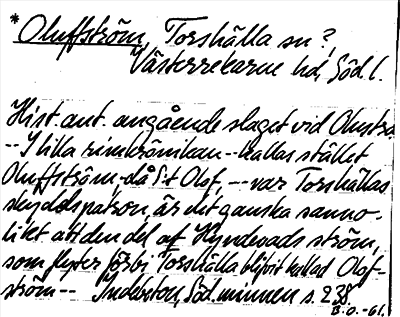 *Oluffström, Torshälla sn?,
Västerrekarne hd, Söd. l.
Hist. ant. angående slaget vid Olustra
-- I lilla rimkrönikan -- kallas stället
Oluffström, då S:t Olof, -- var Torshällas
skyddspatron, är det ganska sanno-
likt att den del af Hyndevads ström,
som flyter förbi Torshälla blifvit kallad Olof-
ström -- Indebetou, Söd. minnen s. 238.
B.O. -61.